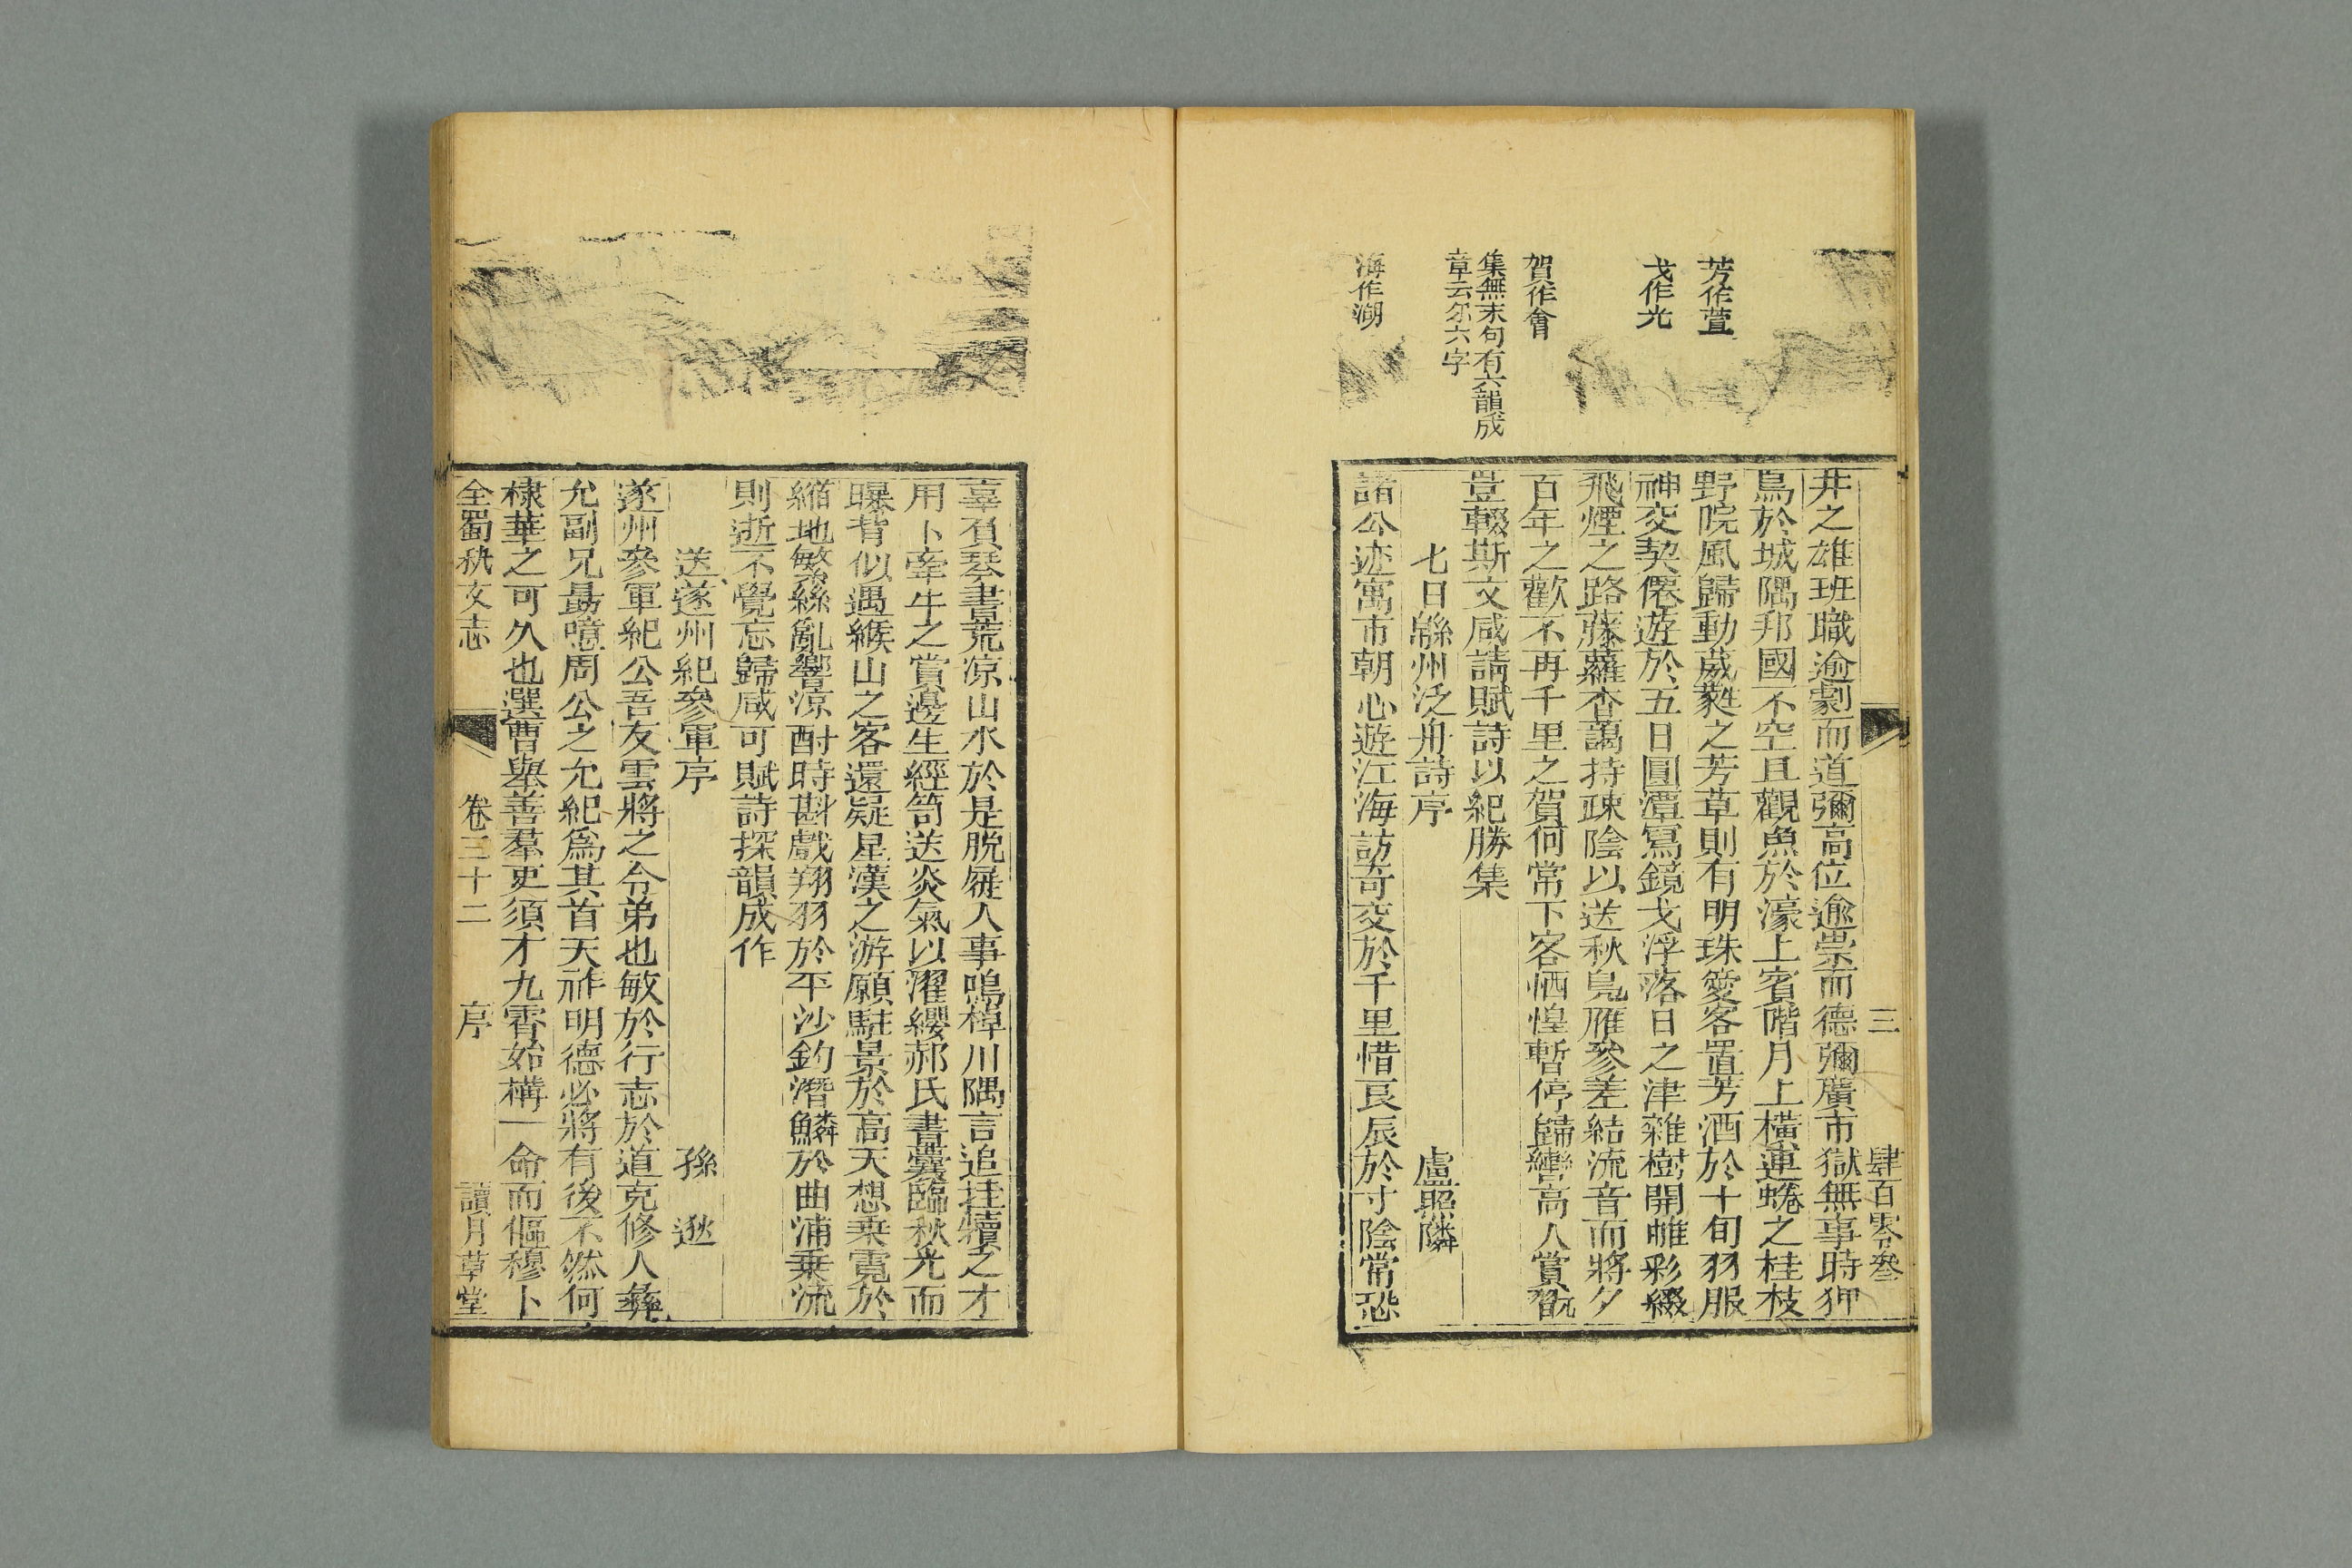 三
肆百零叁
井之雄班職逾劇而道彌高位逾崇而德彌廣市獄無事時狎
鳥於城隅邦國不空且觀魚於濠上賓階月上橫連蜷之桂枝
野院風歸動葳蕤之芳草則有明珠愛客置芳酒於十旬羽服
神交契僊遊於五日圓潭寫鏡戈浮落日之津雜樹開帷彩綴
飛煙之路藤蘿杳藹持疎陰以送秋鳧雁參差結流音而將夕
百年之歡不再千里之賀何常下客恓惶暫停歸轡高人賞翫
豈輟斯文咸請賦詩以紀勝集
七日緜州泛舟詩序 盧照隣
諸公迹寓市朝心遊江海訪奇交於千里惜良辰於寸陰常恐
芳作萱
戈作光
賀作會
集無末句有六韻成
章云尒六字
海作湖
辜負琴書荒凉山水於是脱屣人事鳴棹川隅言追挂犢之才
用卜牽牛之賞邊生經笥送炎氣以濯纓郝氏書囊臨秋光而
曝背似遇緱山之客還疑星漢之游願駐景於高天想乘霓於
縮地繁絲亂響凉酎時斟戲翔羽於平沙釣潛鱗於曲浦乘流
則逝不覺忘歸咸可賦詩探韻成作
送遂州紀參軍序 孫逖
遂州參軍紀公吾友雲將之令弟也敏於行志於道克修人彝
允副兄勗噫周公之允紀爲其首天祚明德必將有後不然何
棣華之可久也選曹舉善羣吏須才九霄始構一命而傴穆卜
全蜀秇文志 卷三十二 序 讀月草堂